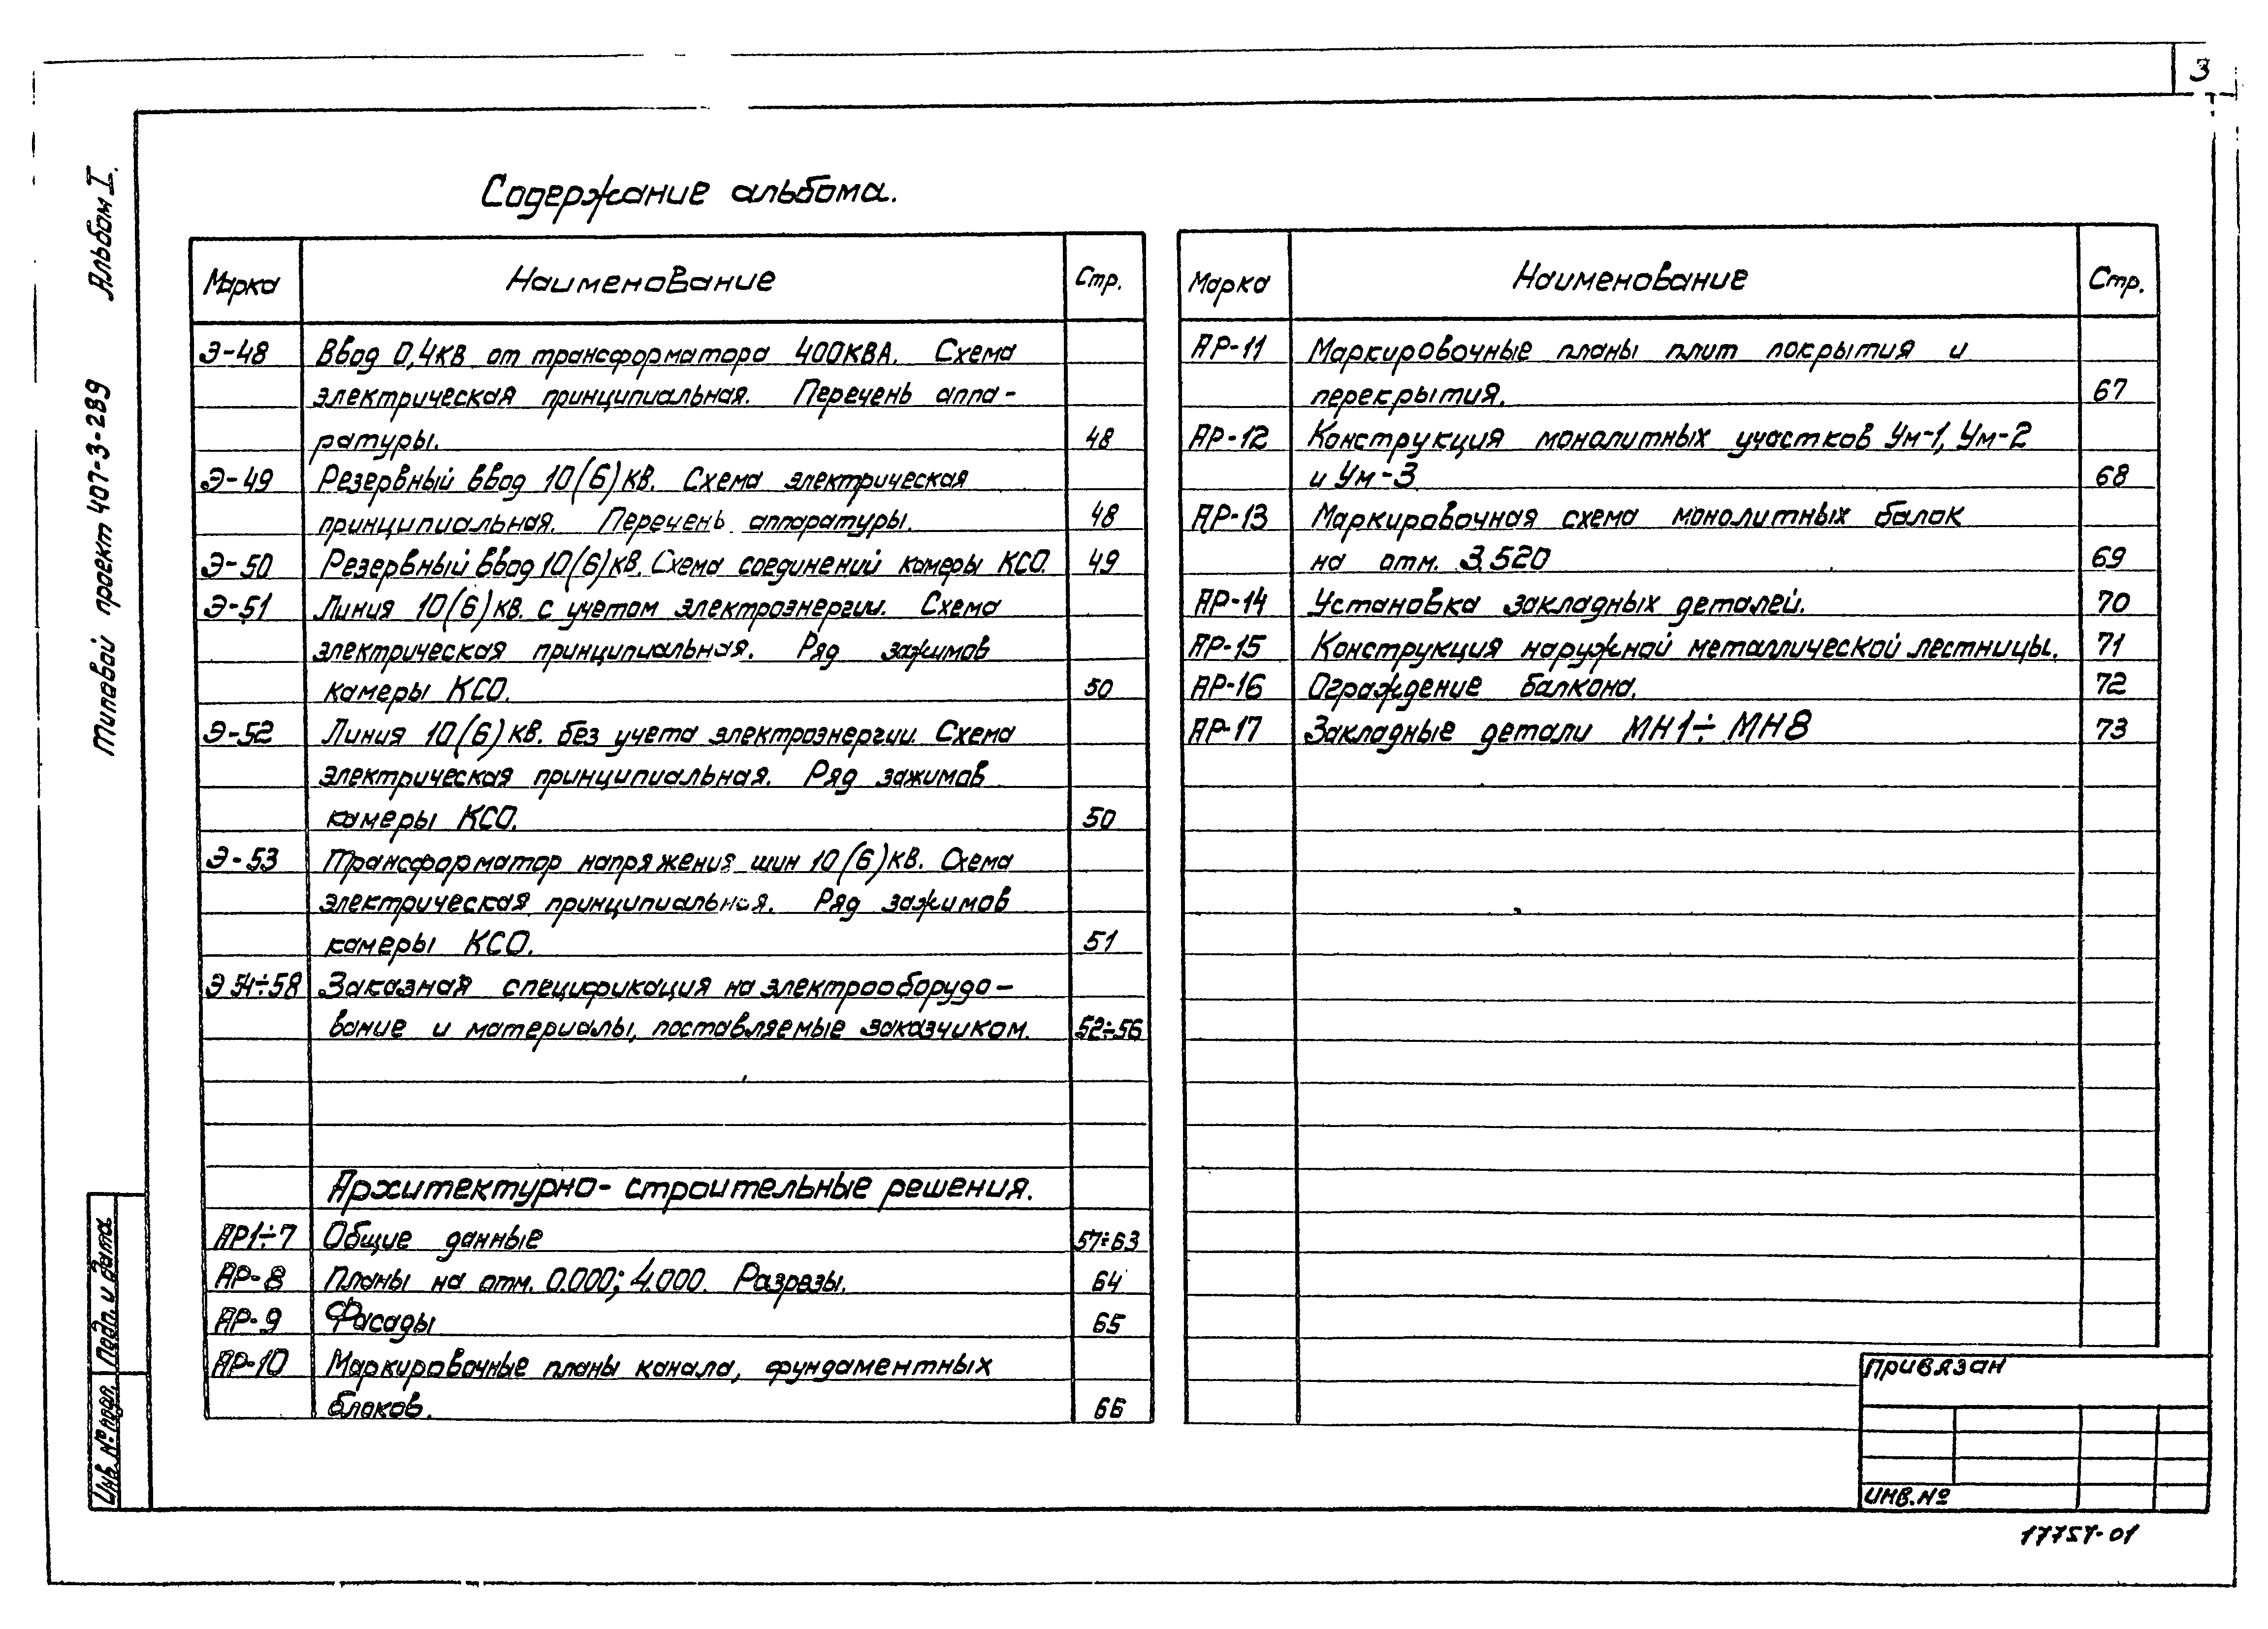 3
Содержание альбома.
Типовой проект 407-3-289 Альбом I.
Марка Наименование Стр.
Э-48 Ввод 0,4кв от трансформатора 400КВА. Схема
электрическая принципиальная. Перечень аппа-
ратуры. 48
Э-49 Резервный ввод 10(6)кв. Схема электрическая
принципиальная. Перечень аппаратуры. 48
Э-50 Резервный ввод 10(6)кв. Схема соединений камеры КСО. 49
Э-51 Линия 10(6)кв. с учетом электроэнергии. Схема
электрическая принципиальная. Ряд зажимов
камеры КСО. 50
Э-52 Линия 10(6)кв. без учета электроэнергии. Схема
электрическая принципиальная. Ряд зажимов
камеры КСО. 50
Э-53 Трансформатор напряжения шин 10(6)кв. Схема
электрическая принципиальная. Ряд зажимов
камеры КСО. 51
Э 54÷58 Заказная спецификация на электрооборудо-
вание и материалы, поставляемые заказчиком. 52÷56
Архитектурно-строительные решения.
АР1÷7 Общие данные 57÷63
АР-8 Планы на отм. 0.000; 4.000. Разрезы. 64
АР-9 Фасады 65
АР-10 Маркировочные планы канала, фундаментных
блоков. 66
Марка Наименование Стр.
АР-11 Маркировочные планы плит покрытия и
перекрытия. 67
АР-12 Конструкция монолитных участков Ум-1, Ум-2
и Ум-3 68
АР-13 Маркировочная схема монолитных балок
на отм. 3.520 69
АР-14 Установка закладных деталей. 70
АР-15 Конструкция наружной металлической лестницы. 71
АР-16 Ограждение балкона. 72
АР-17 Закладные детали МН1÷МН8 73
Инв. № подл. Подп. и дата
Привязан
Инв. №
17757-01